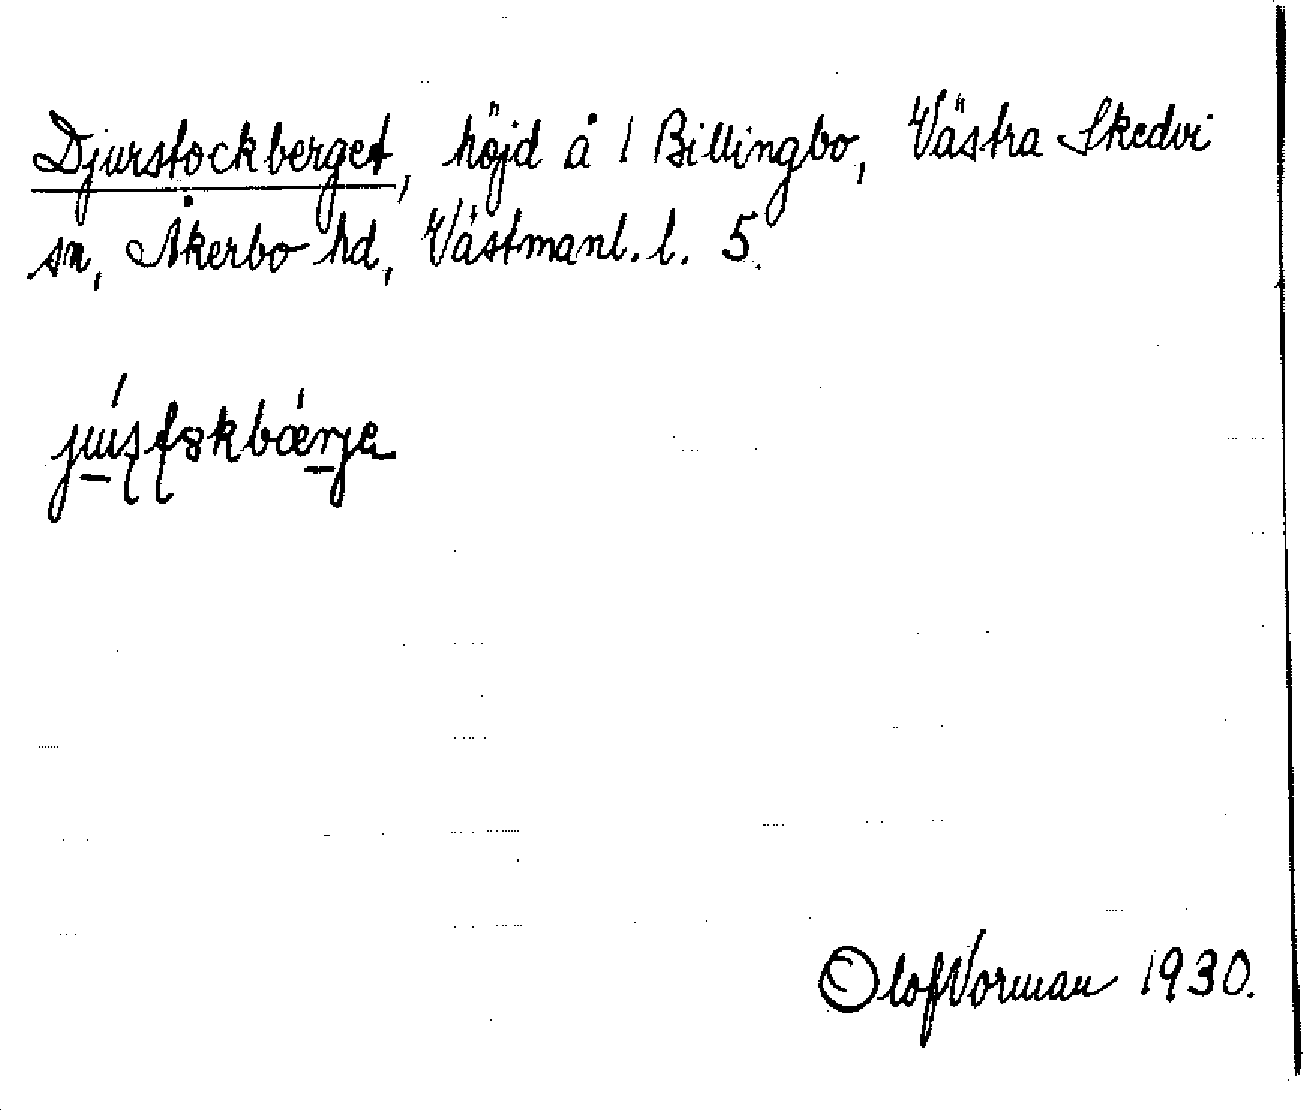 Djurstockberget, höjd å 1 Billingbo, Västra Skedvi
sn, Åkerbo hd, Västmanl. l. 5.
Olof Vorman 1930.